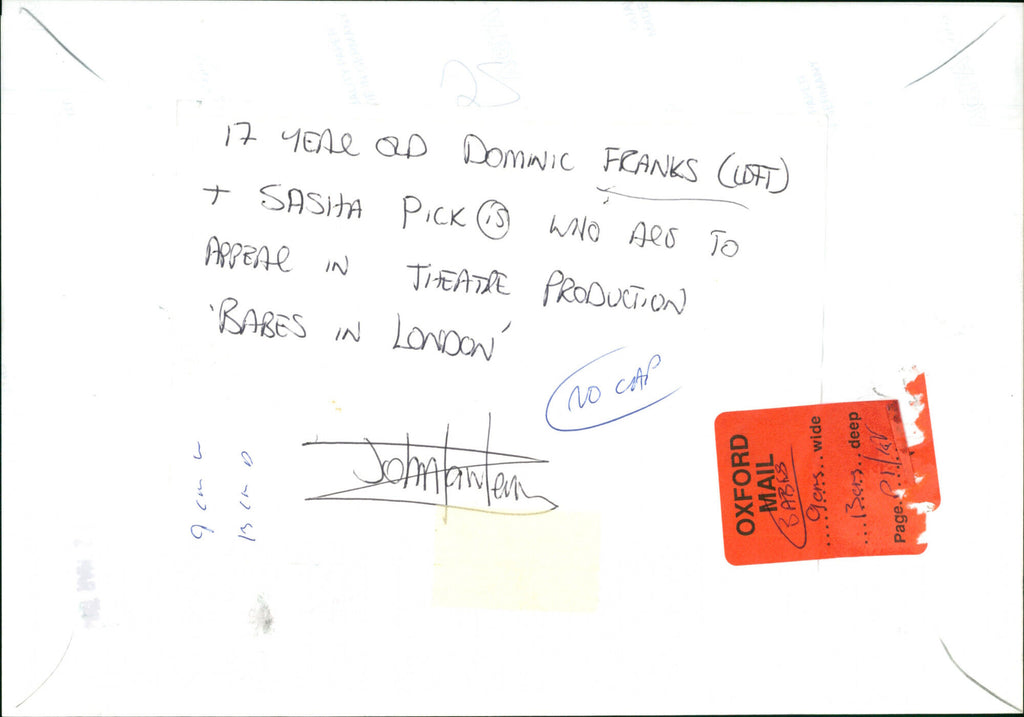 25
17 YEAR OLD DOMINIC FRANKS (LEFT)
+ SASHA PICK 15 WHO ARE TO
APPEAR IN THEATRE PRODUCTION
'BABES IN LONDON'
NO CAP
9 cm W
13 cm D
OXFORD
MAIL
BABES
....9cms...wide
...13cms...deep
Page.